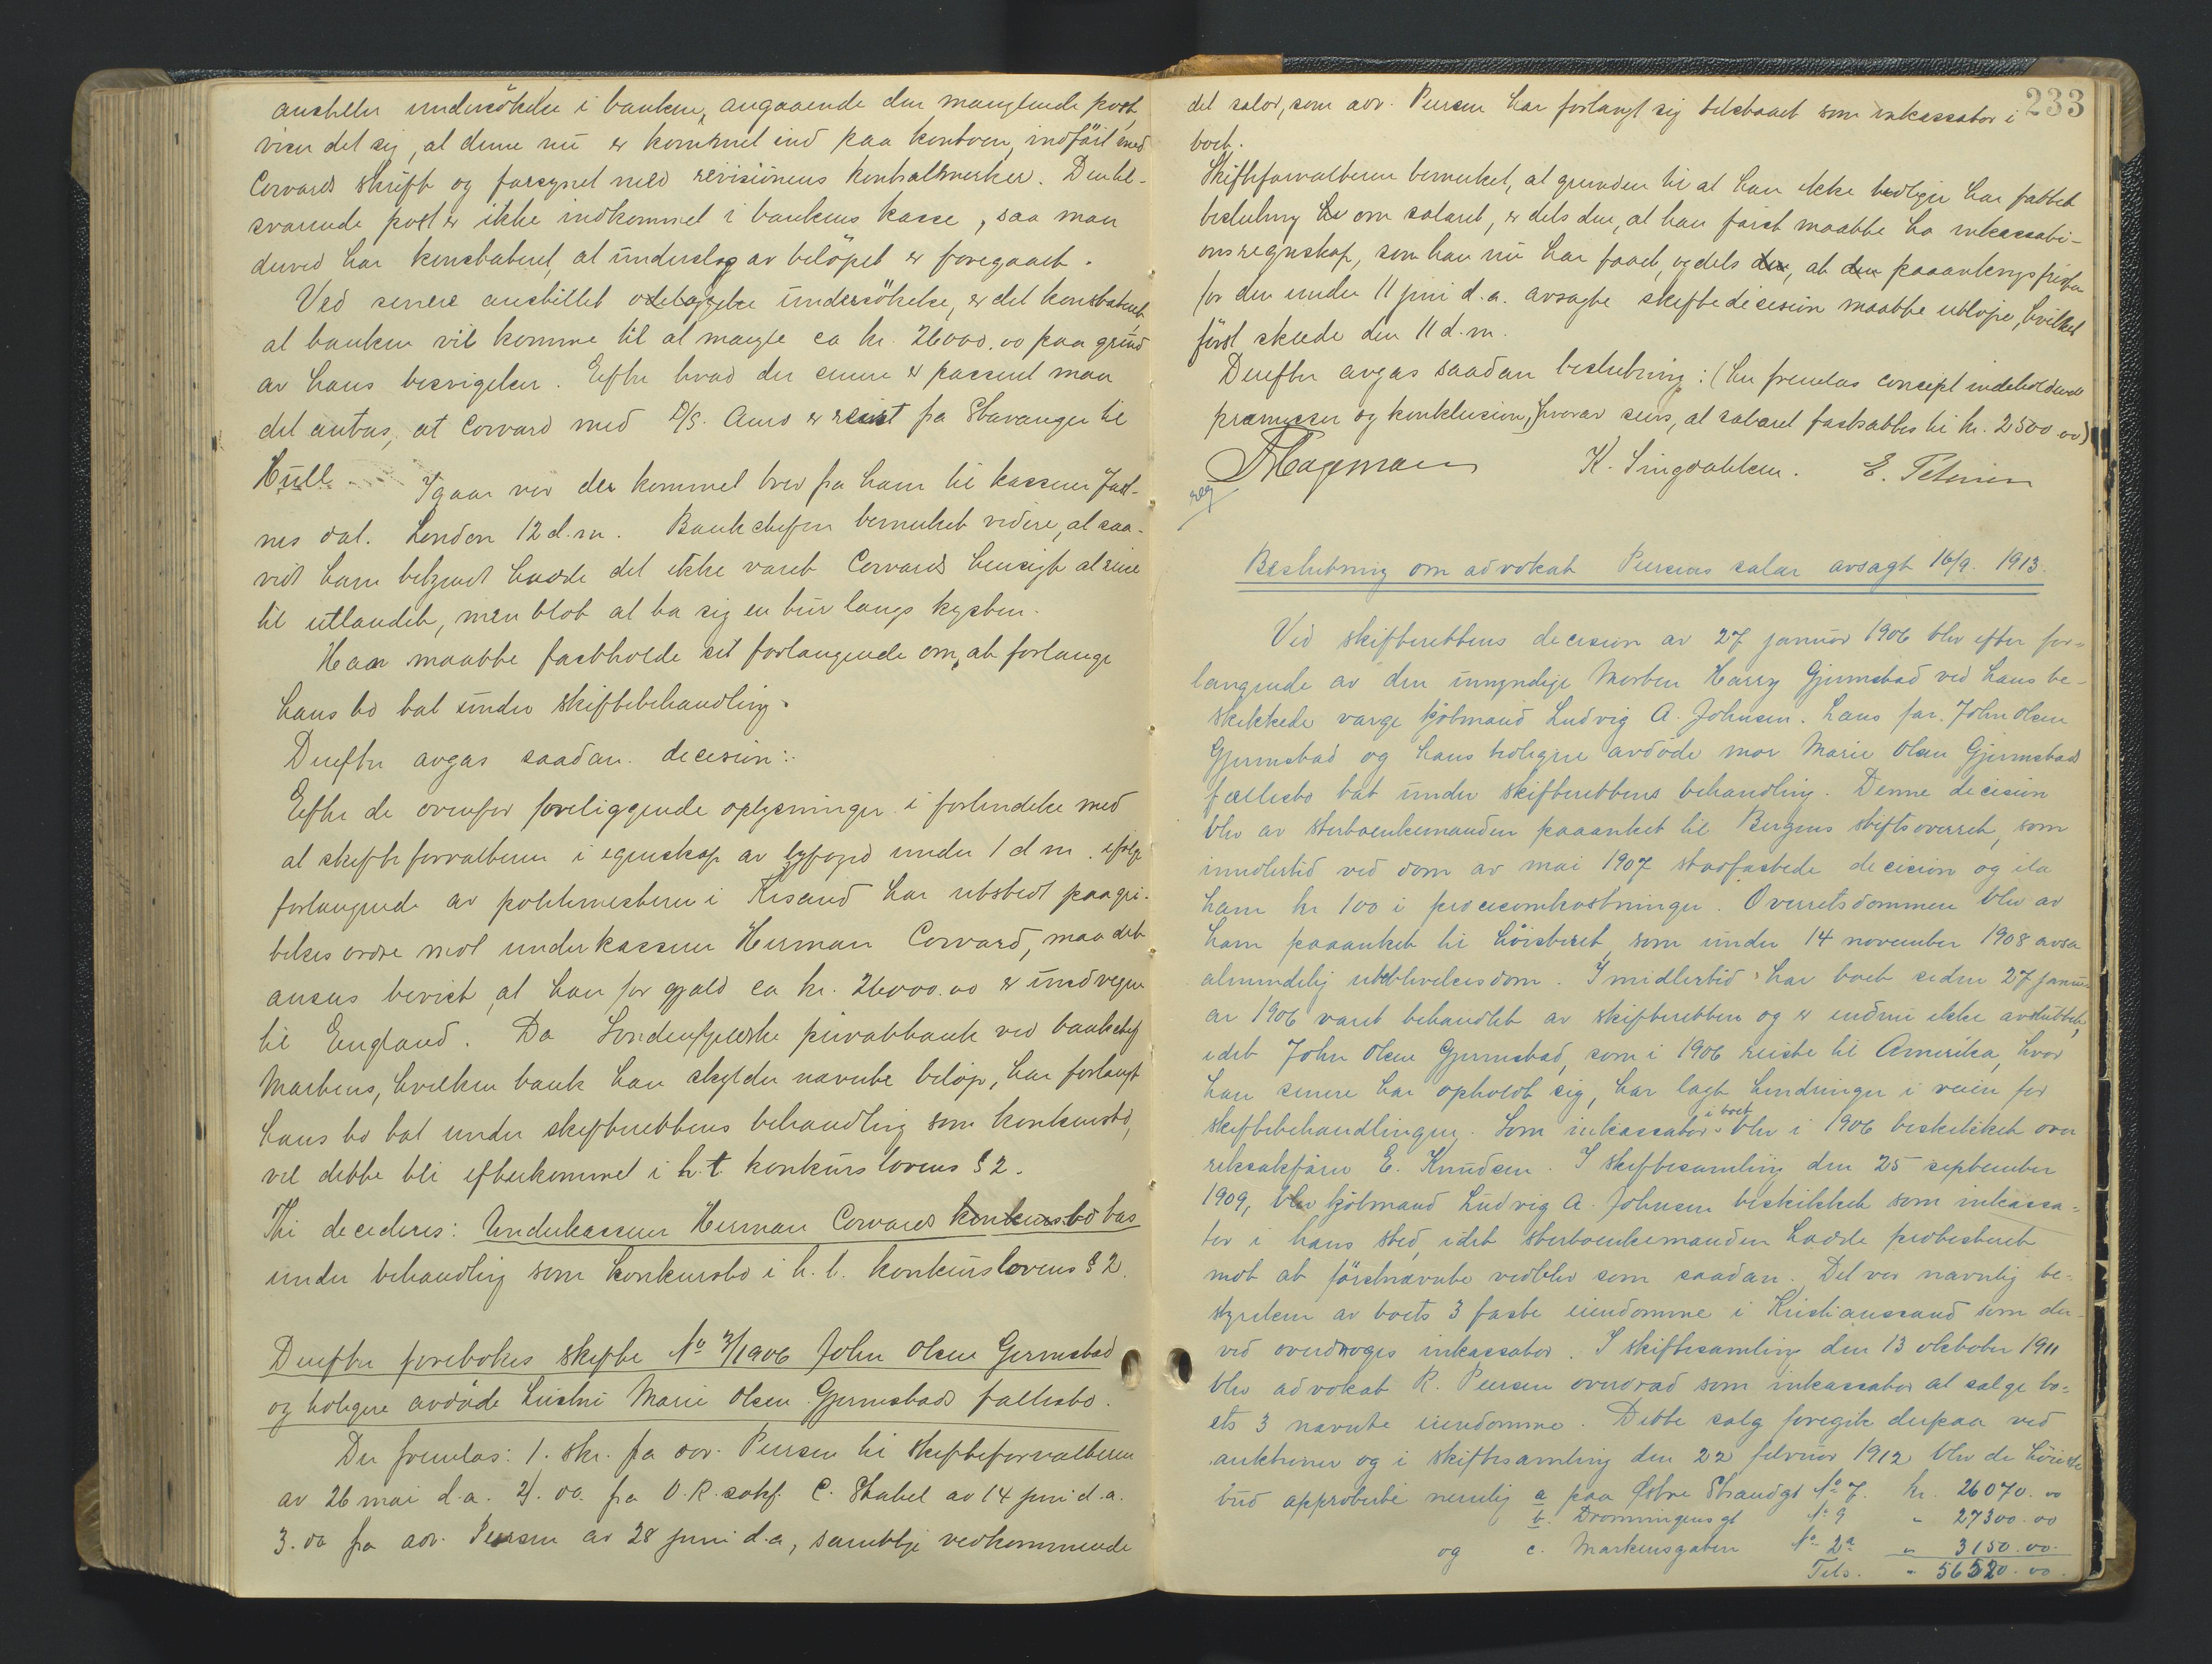 anstillet undersökelse i banken, angaaende den manglende post,
viser det sig, at denne nu er kommet ind paa kontoen, indfört med
Corvards skrift og forsynet med revisionens kontrolmerker. Den til-
svarende post er ikke indkommet i bankens kasse, saa man
derved har konstateret, at underslag av belöpet er foregaaet.
Ved senere anstillet undersökelse, er det konstateret,
at banken vil komme til at mangle ca kr. 26000.00 paa grund
av hans besvigelser. Efter hvad der senere er passeret maa
det antas, at Corvard med D/S. Aurs er reist fra Stavanger til
Hull. Igaar var der kommet brev fra ham til kasserer Jast-
nes dat. London 12 d.m. Bankchefen bemerket videre, at saa-
vidt ham bekjendt hadde det ikke været Corvards hensigt at reise
til utlandet, men blot at ta sig en tur langs kysten.
Han maatte fastholde sit forlangende om, at forlange
hans bo tat under skiftebehandling.
Derefter avgas saadan decision:
Efter de ovenfor foreliggende oplysninger i forbindelse med
at skifteforvalteren i egenskap av byfoged under 1 d m. ifølge
forlangende av politimesteren i Krsand har utstedt paagri-
belses ordre mot underkasserer Herman Corvard, maa det
ansees bevist, at han for gjæld ca kr. 26000.00 er undvegen
til England. Da Søndenfjeldske privatbank ved bankchef
Martens, hvilken bank han skylder nævnte beløp, har forlangt
hans bo tat under skifterettens behandling som konkursbo,
vil dette bli efterkommet i h.t. konkurslovens § 2.
Thi decideres: Underkasserer Herman Corvards konkursbo tas
under behandling som konkursbo i h.t. konkurslovens § 2.
Derefter foretokes skifte No 3/1906 John Olsen Germestad
og tidligere avdöde hustru Marie Olsen Gjermestads fællesbo.
Der fremlas: 1. skr. fra adv. Peersen til skifteforvalteren
av 26 mai d.a. 2). do. fra O.R.sakf. C. Stabel av 14 juni d.a.
3. do fra adv. Peersen av 28 juni d.a, samtlige vedkommende
233
det salær, som adv. Peersen har forlangt sig tilstaaet som inkassator i
boet.
Skifteforvalteren bemerket, at grunden til at han ikke tidligere har fattet
beslutning om salæret, er dels den, at han først maatte ha inkassati-
onsregnskap, som han nu har faaet, og dels den, at den paaankningsfristen
for den under 11 juni d.a. avsagte skiftedecision maatte utløpe, hvilket
först skede den 11 d.m.
Derefter avgas saadan beslutning: (her fremlas concept indeholdende
præmisser og konklusion, hvorav sees, at salæret fastsattes til kr. 2500.00)
Hagemann K. Singdahlsen. E. Petersen
reg
Beslutning om advokat Peersens salær avsagt 16/9. 1913.
Ved skifterettens decision av 27 januar 1906 blev efter for-
langende av den umyndige Morten Harry Gjermestad ved hans be-
skikkede værge kjöbmand Ludvig A. Johnsen. hans far. John Olsen
Gjermestad og hans tidligere avdöde mor Marie Olsen Gjermestads
fællesbo tat under skifterettens behandling. Denne decision
blev av sterboenkemanden paaanket til Bergens stiftsoverret, som
imidlertid ved dom av mai 1907 stadfæstede decision og ila
ham kr 100 i procesomkostninger. Overretsdommen blev av
ham paaanket til høiesteret, som under 14 november 1908 avsa
almindelig uteblivelsesdom. Imidlertid har boet siden 27 janu-
ar 1906 været behandlet av skifteretten og er endnu ikke avsluttet,
idet John Olsen Gjermestad, som i 1906 reiste til Amerika, hvor
han senere har opholdt sig, har lagt hindringer i veien for
skiftebehandlingen. Som inkassator i boet blev i 1906 beskikket over
retssakfører E. Knudsen. I skiftesamling den 25 september
1909, blev kjöbmand Ludvig A. Johnsen beskikket som inkassa-
tor i hans sted, idet sterboenkemanden hadde protesteret
mot at förstnævnte vedblev som saadan. Det var navnlig be-
styrelsen av boets 3 faste eiendomme i Kristianssand som der-
ved overdroges inkassator. I skiftesamling den 13 oktober 1911
blev advokat R. Peersen overdrad som inkassator at sælge bo-
ets 3 nævnte eiendomme. Dette salg foregik derpaa ved
auktioner og i skiftesamling den 22 februar 1912 blev de høieste
bud approberte nemlig a paa Østre Strandgt No 7. kr. 26070.00
b. Dronningensgt No 9 " 27300.00
og c. Markensgaten No 2a " 3150.00.
Tils. " 56520.00.